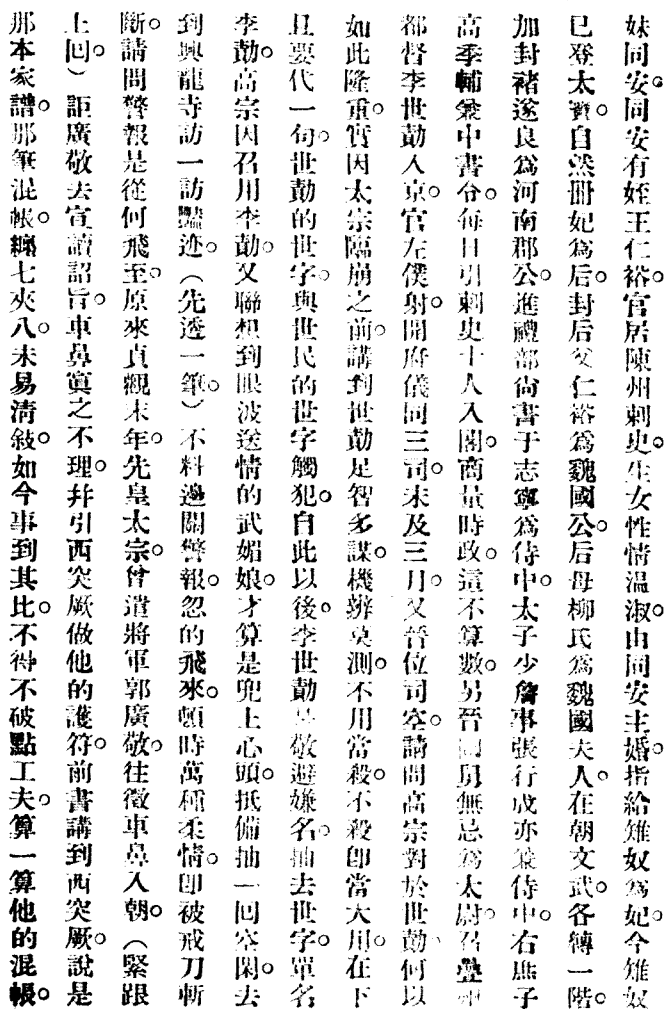 妹同安。同安有姪王仁裕官居陳州刺史。生女性情溫淑由同安主婚。指給雉奴爲妃。今雉奴
已登太寶。自然冊妃爲后。封后父仁裕爲魏國公。后母柳氏爲魏國夫人。在朝文武。各轉一階。
加封褚遂良爲河南郡公。進禮部尙書于志寧爲侍中。太子少詹事張行成亦兼侍中。右庶子
高季輔兼中書令。每日引刺史十人入閣。商量時政。這不算數。另晉國舅無忌爲太尉。召疊州
都督李世勣入京。官左僕射。開府儀同三司。未及三月。又晉位司空。請問高宗對於世勣。何以
如此隆重。實因太宗臨崩之前。講到世勣足智多謀。機辨莫測。不用當殺。不殺卽當大用。在下
且要代一句。世勣的世字。與世民的世字觸犯。自此以後。李世勣 敬避嫌名。抽去世字。單名
李勣。高宗因召用李勣。又聯想到眼波送情的武媚娘。才算是兜上心頭。抵備抽一回空閑。去
到興龍寺訪一訪豔迹。（先透一筆）不料邊關警報。忽的飛來。頓時萬種柔情。卽被戒刀斬
斷。請問警報是從何飛至。原來貞觀末年。先皇太宗曾遣將軍郭廣敬。往徵車鼻入朝。（緊跟
上回）詎廣敬去宣讀詔旨。車鼻寘之不理。幷引西突厥做他的護符。前書講到西突厥。說是
那本家譜。那筆混帳。纏七夾八。未易淸敍。如今事到其比。不得不破點工夫。算一算他的混帳。